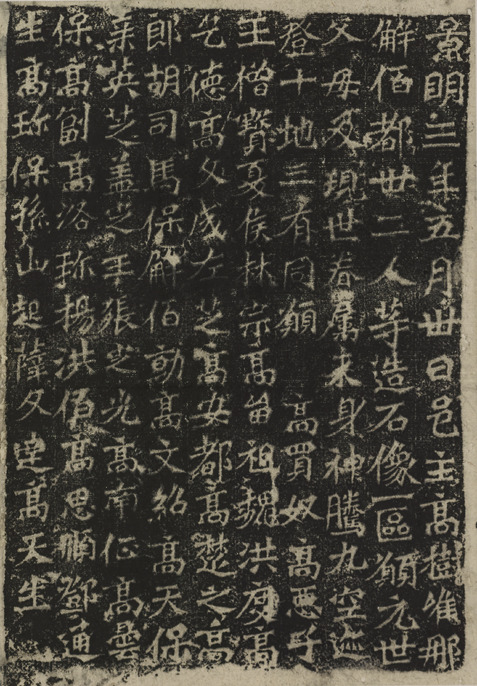 景明三年五月卅日邑主高樹唯那
解佰都卅二人等造石像一區願元世
父母及現世眷屬來身神騰九空迹
登十地三有同願 高買奴高惡子
王僧寶夏侯林宗高留祖魏洪度高
乞德高文成左芝高安都高楚之高
郎胡司馬保解佰勍高文紹高天保
英芝蓋之王張光高南征高曇
保高副高洛珎楊洪佰高思順鄧通
生高珎保孫山起薛文達高天生